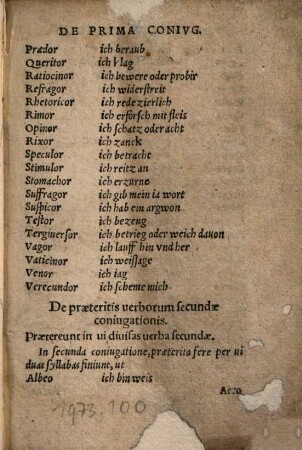 DE PRIMA CONIVG.
Prædor ich beraub
Queritor ich klag
Ratiocinor ich bewere oder probir
Refragor ich widerstreit
Rhetoricor ich rede zierlich
Rimor ich erförsch mit fleis
Opinor ich schatz oder acht
Rixor ich zanck
Speculor ich betracht
Stimulor ich reitz an
Stomachor ich erzürne
Suffragor ich gib mein ia wort
Suspicor ich hab ein argwon
Testor ich bezeug
Tergiuersor ich betrieg oder weich dauon
Vagor ich lauff hin vnd her
Vaticinor ich weissage
Venor ich iag
Verecundor ich scheme mich
De præteritis verborum secundæ
coniugationis.
Prætereunt in ui diuisas uerba secundæ.
In secunda coniugatione, præterita fere per ui
duas syllabas finiunt, ut
Albeo ich bin weis
1973.100